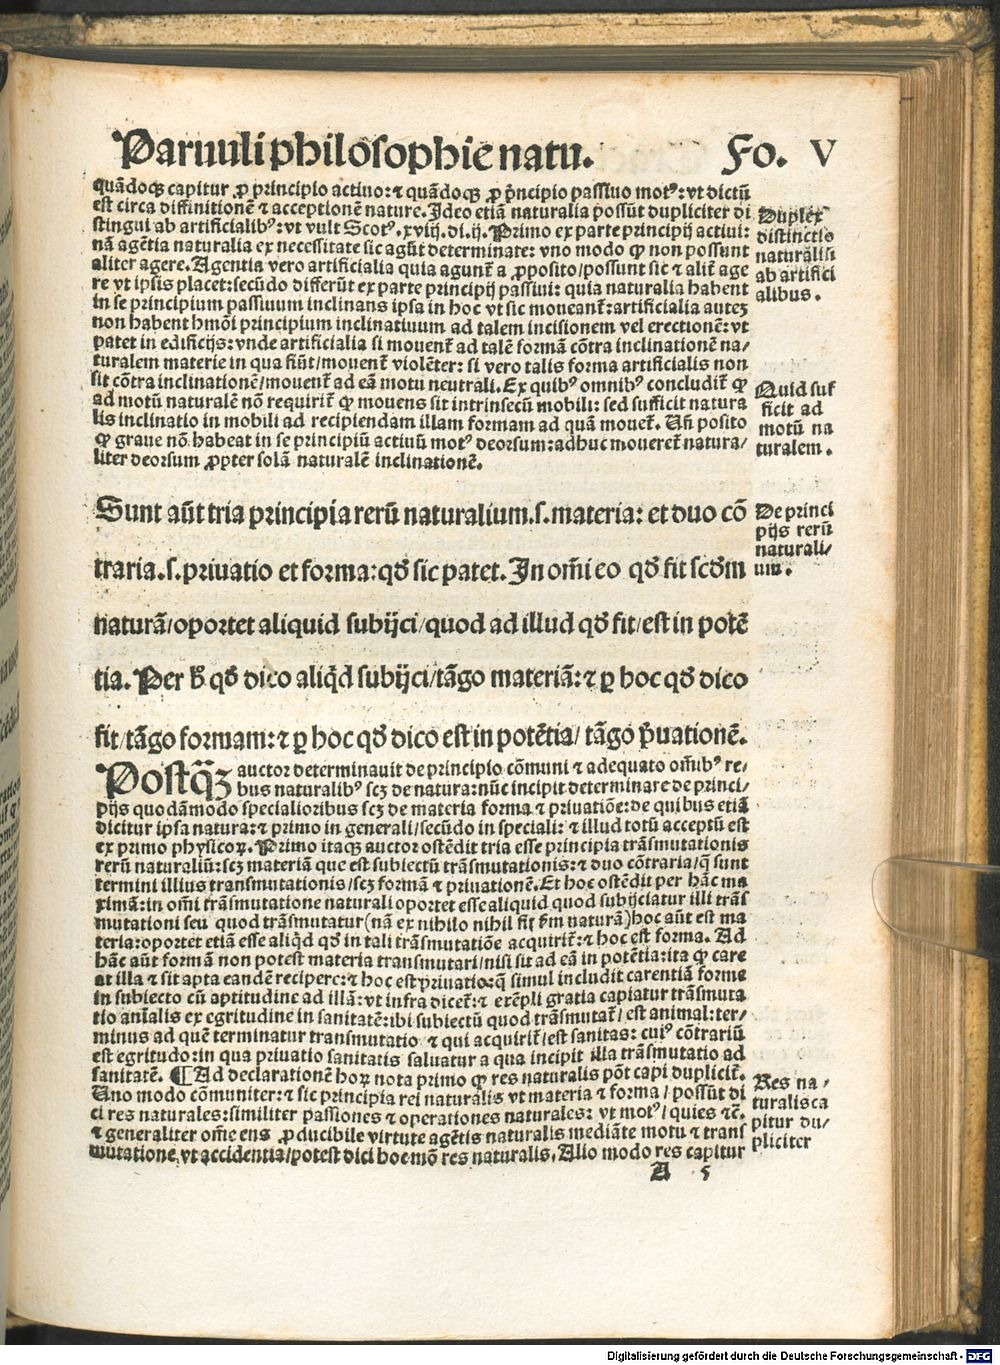 Paruuli philosophie natu. Fo. V
quãdoqꝫ capitur ꝓ principio actiuo: ⁊ quãdoqꝫ ꝓ p̃ncipio passiuo motꝰ: vt dictũ
est circa diffinitionẽ ⁊ acceptionẽ nature. Ideo etiã naturalia possũt dupliciter di
stingui ab artificialibꝰ: vt vult Scotꝰ. xviij. di. ij. Primo ex parte principij actiui:
nã agẽtia naturalia ex necessitate sic agũt determinate: vno modo ꝙ non possunt
aliter agere. Agentia vero artificialia quia agunt̃ a ꝓposito/possunt sic ⁊ alit̃ age
re vt ipsis placet: secũdo differũt ex parte principij passiui: quia naturalia habent
in se principium passiuum inclinans ipsa in hoc vt sic moueant̃: artificialia auteꝫ
non habent hmõi principium inclinatiuum ad talem incisionem vel erectionẽ: vt
patet in edificijs: vnde artificialia si mouent̃ ad talẽ formã cõtra inclinationẽ na/
turalem materie in qua fiũt/mouent̃ violẽter: si vero talis forma artificialis non
sit cõtra inclinationẽ/mouent̃ ad eã motu neutrali. Ex quibꝰ omnibꝰ concludit̃ ꝙ
ad motũ naturalẽ nõ requirit̃ ꝙ mouens sit intrinsecũ mobili: sed sufficit natura
lis inclinatio in mobili ad recipiendam illam formam ad quã mouet̃. Uñ posito
ꝙ graue nõ habeat in se principiũ actiuũ motꝰ deorsum: adhuc moueret̃ natura/
liter deorsum ꝓpter solã naturalẽ inclinationẽ.
Duplex
distinctio
naturaliũ
ab artifici
alibus.
Quid suf
ficit ad
motũ na
turalem.
Sunt aũt tria principia rerũ naturalium. s. materia: et duo cõ
traria. s. priuatio et forma: qđ sic patet. In om̃i eo qđ fit scđm
naturã/oportet aliquid subijci/quod ad illud qđ fit/est in potẽ
tia. Per h̾ qđ dico aliqd̾ subijci/tãgo materiã: ⁊ ꝑ hoc qđ dico
fit/tãgo formam: ⁊ ꝑ hoc qđ dico est in potẽtia/ tãgo p̃uationẽ.
De princi
pijs rerũ
naturali/
um.
Postq̃ꝫ auctor determinauit de principio cõmuni ⁊ adequato om̃ibꝰ re/
bus naturalibꝰ scꝫ de natura: nũc incipit determinare de princi/
pijs quodãmodo specialioribus scꝫ de materia forma ⁊ priuatiõe: de quibus etiã
dicitur ipsa natura: ⁊ primo in generali/secũdo in speciali: ⁊ illud totũ acceptũ est
ex primo physicoꝝ. Primo itaqꝫ auctor ostẽdit tria esse principia trãsmutationis
rerũ naturaliũ: scꝫ materiã que est subiectũ trãsmutationis: ⁊ duo cõtraria/q̃ sunt
termini illius transmutationis/scꝫ formã ⁊ priuationẽ. Et hoc ostẽdit per hãc ma
ximã: in om̃i trãsmutatione naturali oportet esse aliquid quod subijciatur illi trãs
mutationi seu quod trãsmutatur (nã ex nihilo nihil fit f̃m naturã) hoc aũt est ma
teria: oportet etiã esse aliqd̾ qđ in tali trãsmutatiõe acquirit̃: ⁊ hoc est forma. Ad
hãc aũt formã non potest materia transmutari/nisi sit ad eã in potẽtia: ita ꝙ care
at illa ⁊ sit apta eandẽ recipere: ⁊ hoc est priuatio: q̃ simul includit carentiã forme
in subiecto cũ aptitudine ad illã: vt infra dicet̃: ⁊ exẽpli gratia capiatur trãsmuta
tio anĩalis ex egritudine in sanitatẽ: ibi subiectũ quod trãsmutat̃/ est animal: ter/
minus ad quẽ terminatur transmutatio ⁊ qui acquirit̃/est sanitas: cuiꝰ cõtrariũ
est egritudo: in qua priuatio sanitatis saluatur a qua incipit illa trãsmutatio ad
sanitatẽ. ¶ Ad declarationẽ hoꝝ nota primo ꝙ res naturalis põt capi duplicit̃.
Uno modo cõmuniter: ⁊ sic principia rei naturalis vt materia ⁊ forma/ possũt di
ci res naturales: similiter passiones ⁊ operationes naturales: vt motꝰ/ quies ⁊c̃.
⁊ generaliter om̃e ens ꝓducibile virtute agẽtis naturalis mediãte motu ⁊ trans
mutatione, vt accidentia/potest dici hoc mõ res naturalis. Alio modo res capitur
Res na/
turalis ca
pitur du/
pliciter
A 5
Digitalisierung gefördert durch die Deutsche Forschungsgemeinschaft - DFG